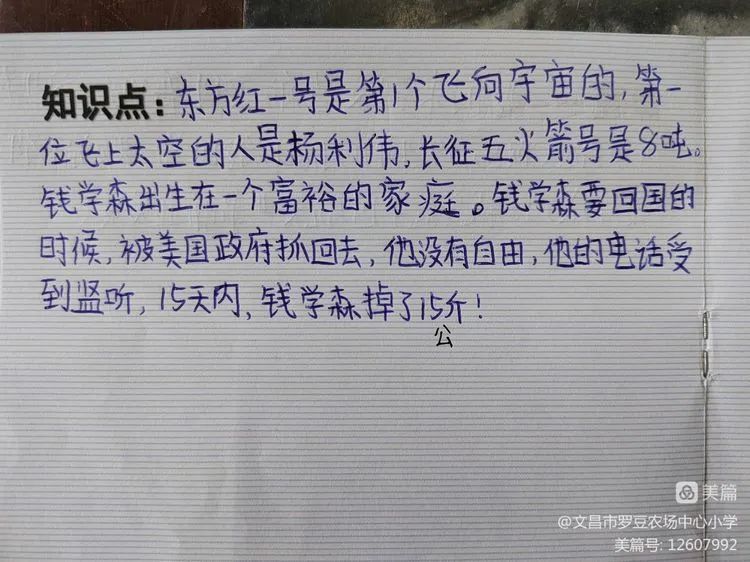 知识点：东方红一号是第1个飞向宇宙的，第一
位飞上太空的人是杨利伟，长征五火箭号是8吨。
钱学森出生在一个富裕的家庭。钱学森要回国的
时候，被美国政府抓回去，他没有自由，他的电话受
到监听，15天内，钱学森掉了15斤！
公
美篇
@文昌市罗豆农场中心小学
美篇号: 12607992